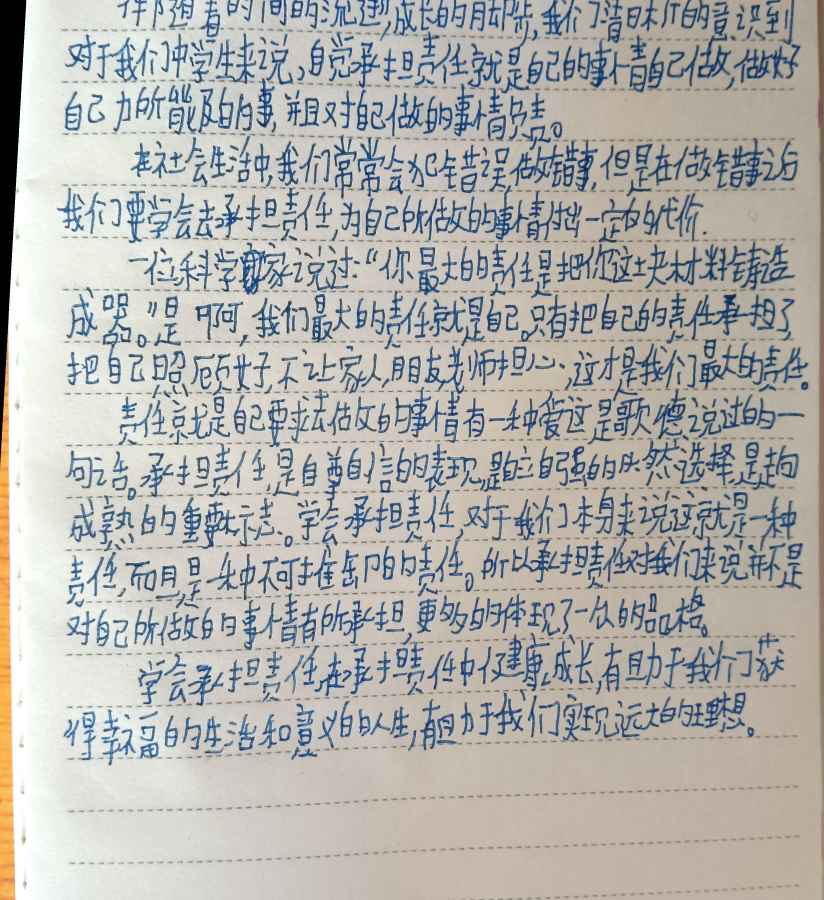 伴随着时间的流逝,成长的脚步,我们清晰的意识到
对于我们中学生来说,自觉承担责任就是自己的事情自己做,做好
自己力所能及的事,并且对自己做的事情负责。
在社会生活中,我们常常会犯错误,做错事,但是在做错事之后
我们要学会去承担责任,为自己所做的事情付出一定的代价.
一位科学家说过:“你最大的责任是把你这块材料铸造
成器。”是啊,我们最大的责任就是自己。只有把自己的责任承担了,
把自己照顾好,不让家人,朋友,老师担心,这才是我们最大的责任。
责任就是自己要求去做的事情有一种爱这是歌德说过的一
句话。承担责任,是自尊自信的表现,是自立自强的必然选择,是走向
成熟的重要标志。学会承担责任,对于我们本身来说这就是一种
责任,而且是一种不可推卸的责任。所以承担责任对我们来说并不是
对自己所做的事情有所承担,更多的体现了一个人的品格。
学会承担责任,在承担责任中健康成长,有助于我们获
得幸福的生活和意义的人生,有助于我们实现远大的理想。